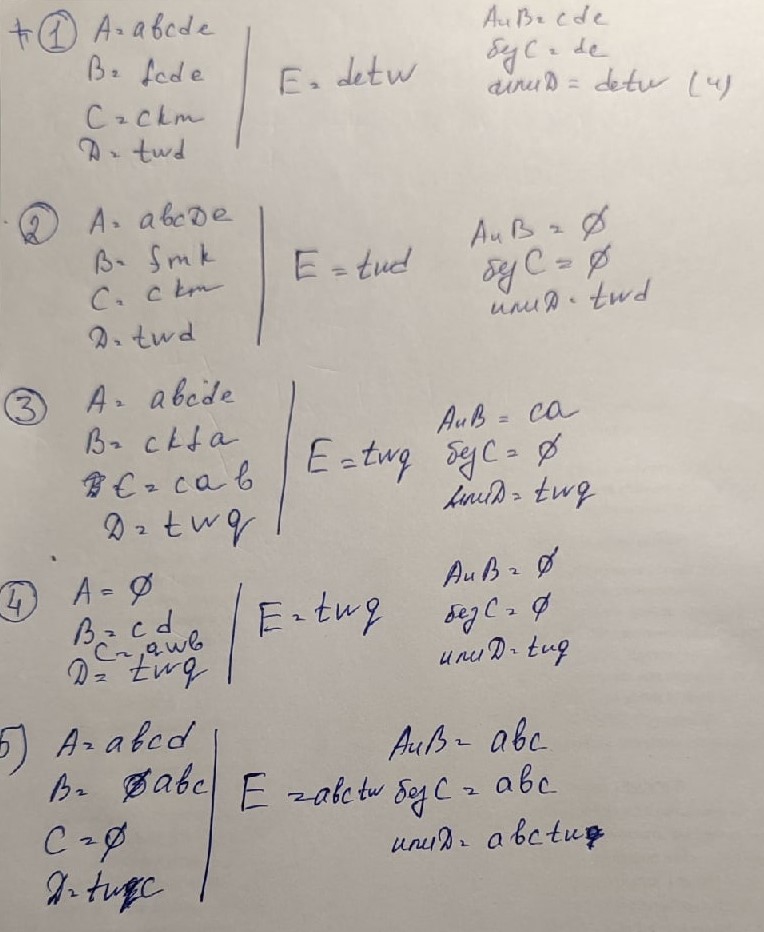 + ① A = abcde
B = fcde
C = ckm
D = twd
E = detw
A и B = cde
без C = de
или D = detw (4)
② A = abcDe
B = fmk
C = ckm
D = twd
E = twd
A и B = ∅
без C = ∅
или D = twd
③ A = abcde
B = ckfa
C = cab
D = twq
E = twq
A и B = ca
без C = ∅
или D = twq
④ A = ∅
B = cd
C = awb
D = twq
E = twq
A и B = ∅
без C = ∅
или D = twq
5) A = abcd
B = abc
C = ∅
D = twc
E = abctw
A и B = abc
без C = abc
или D = abctw